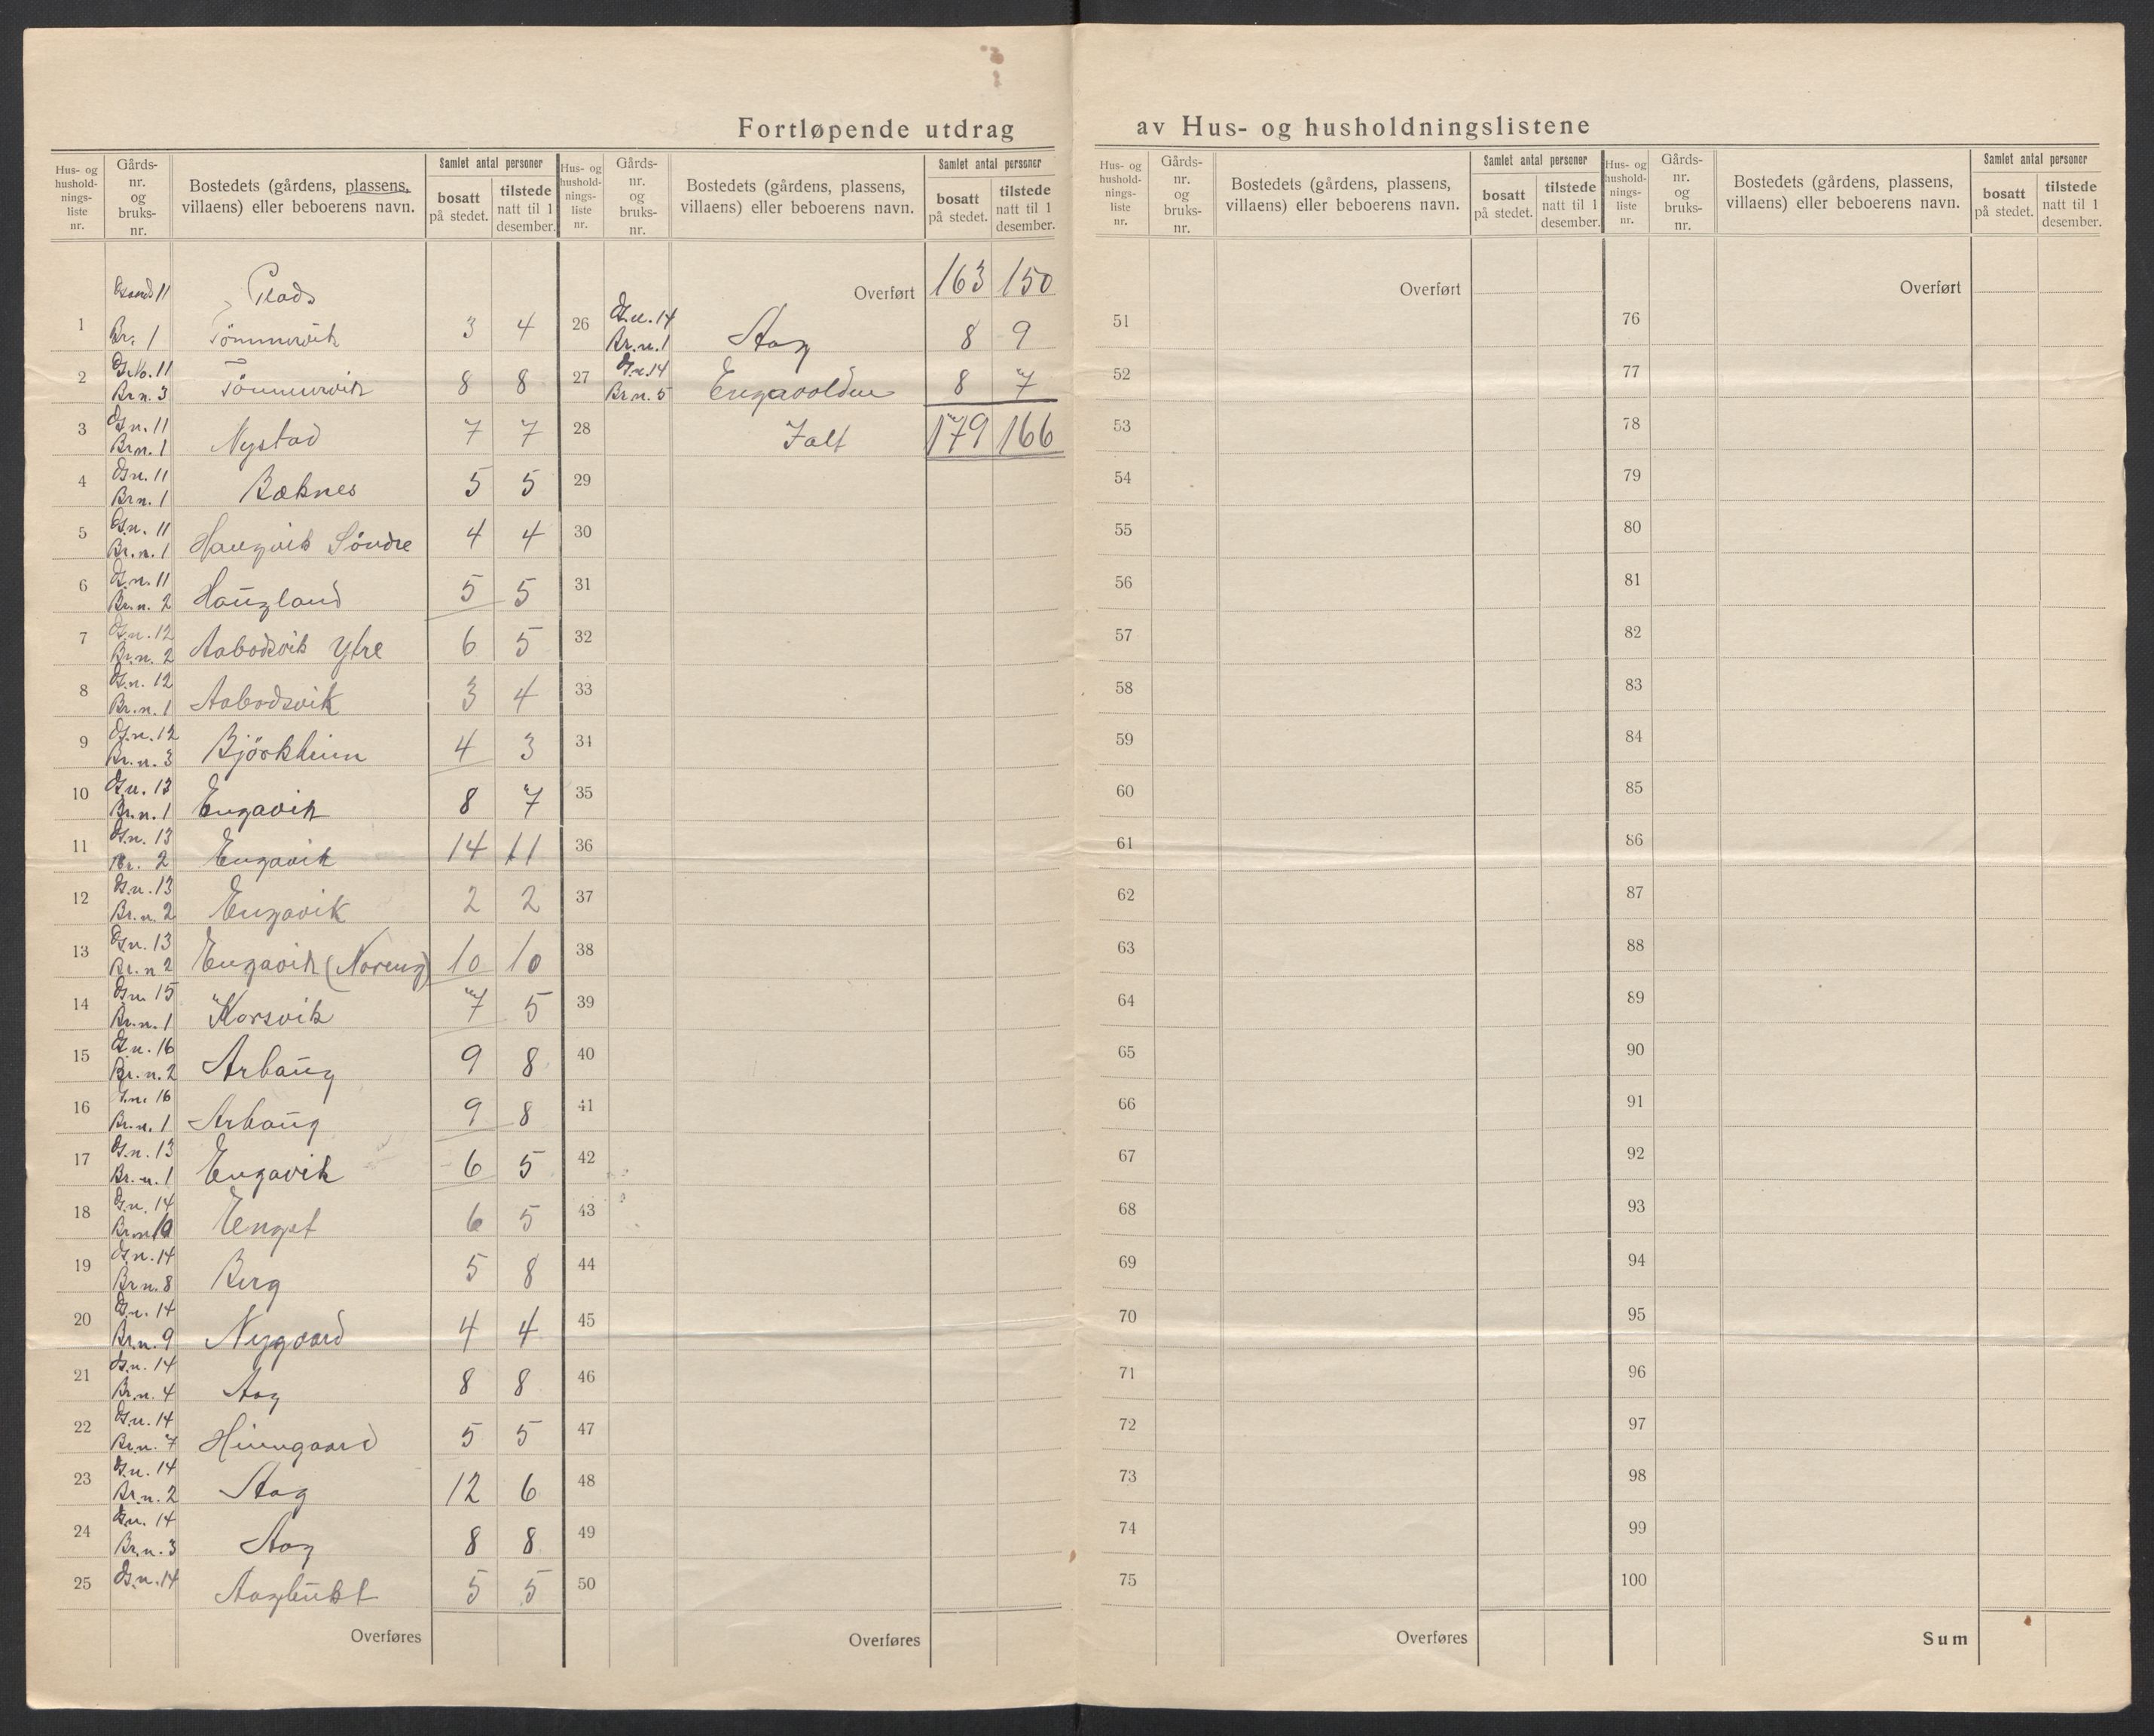 Fortløpende utdrag av Hus- og husholdningslistene
Hus- og hushold- nings- liste nr.
Gårds- nr. og bruks- nr.
Bostedets (gårdens, plassens, villaens) eller beboerens navn.
Samlet antal personer
bosatt på stedet.
tilstede natt til 1 desember.
Hus- og hushold- nings- liste nr.
Gårds- nr. og bruks- nr.
Bostedets (gårdens, plassens, villaens) eller beboerens navn.
Samlet antal personer
bosatt på stedet.
tilstede natt til 1 desember.
11 Plads
1 Br. 1 Tömmervik 3 4
2 G.No. 11 Br n. 3 Tömmervik 8 8
3 G.n. 11 Br n. 1 Nystad 7 7
4 G.n. 11 Br n. 1 Bæknes 5 5
5 G.n. 11 Br. n. 1 Haugvik Söndre 4 4
6 G.n. 11 Br. n. 2 Haugland 5 5
7 G.n. 12 Br. n. 2 Aabodsvik Ytre 6 5
8 G.n. 12 Br. n. 1 Aabodsvik 3 4
9 G.n. 12 Br. n. 3 Björkheim 4 3
10 G.n. 13 Br. n. 1 Engavik 8 7
11 G.n. 13 Br. 2 Engavik 14 11
12 G.n. 13 Br. n. 2 Engavik 2 2
13 G.n. 13 Br. n 2 Engavik (Noreng) 10 10
14 G.n. 15 Br. n. 1 Korsvik 7 5
15 G.n. 16 Br. n. 2 Arhaug 9 8
16 G.n. 16 Br. n. 1 Arhaug 9 8
17 G.n. 13 Br. n. 1 Engavik 6 5
18 G.n. 14 Br n 10 Enget 6 5
19 G.n. 14 Br n. 8 Berg 5 8
20 G.n. 14 Br. n. 9 Nygaard 4 4
21 G.n. 14 Br. n. 4 Aag 8 8
22 G.n. 14 Br. n. 7 5 5
23 G.n. 14 Br. n. 2 Aag 12 6
24 G.n. 14 Br. n. 3 Aag 8 8
25 G.n. 14 Aagbukt 5 5
Overføres
Overført 163 150
26 G.n. 14 Br. n. 1 Aag 8 9
27 G.n. 14 Br. n. 5 Engavolden 8 7
28 Ialt 179 166
29
30
31
32
33
34
35
36
37
38
39
40
41
42
43
44
45
46
47
48
49
50
Overføres
Hus- og hushold- nings- liste nr.
Gårds- nr. og bruks- nr.
Bostedets (gårdens, plassens, villaens) eller beboerens navn.
Samlet antal personer
bosatt på stedet.
tilstede natt til 1 desember.
Hus- og hushold- nings- liste nr.
Gårds- nr. og bruks- nr.
Bostedets (gårdens, plassens, villaens) eller beboerens navn.
Samlet antal personer
bosatt på stedet.
tilstede natt til 1 desember.
Overført
51
52
53
54
55
56
57
58
59
60
61
62
63
64
65
66
67
68
69
70
71
72
73
74
75
Overføres
Overført
76
77
78
79
80
81
82
83
84
85
86
87
88
89
90
91
92
93
94
95
96
97
98
99
100
Sum